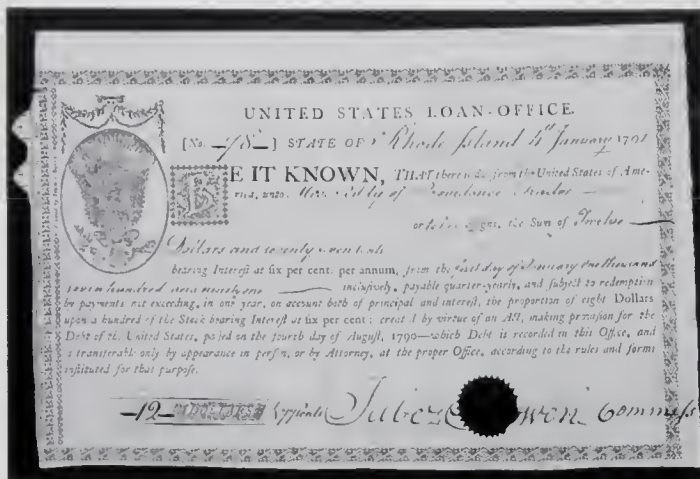 UNITED STATES LOAN-OFFICE.
[No. 78 ] STATE OF Rhode Island 4th January 1791
BE IT KNOWN, THAT there is due from the United States of Ame-
rica, unto of Providence
or Assigns, the Sum of Twelve
Dollars and seventy
bearing Interest at six per cent. per annum, from the first day of January One thousand
seven hundred and ninety one inclusively, payable quarter-yearly, and subject to redemption
by payments not exceeding, in one year, on account both of principal and interest, the proportion of eight Dollars
upon a hundred of the Stock bearing Interest at six per cent; created by virtue of an Act, making provision for the
Debt of the United States, passed on the fourth day of August, 1790—which Debt is recorded in this Office, and
is transferable only by appearance in person, or by Attorney, at the proper Office, according to the rules and forms
instituted for that purpose.
12 DOLLARS Jabez Bowen Commiss